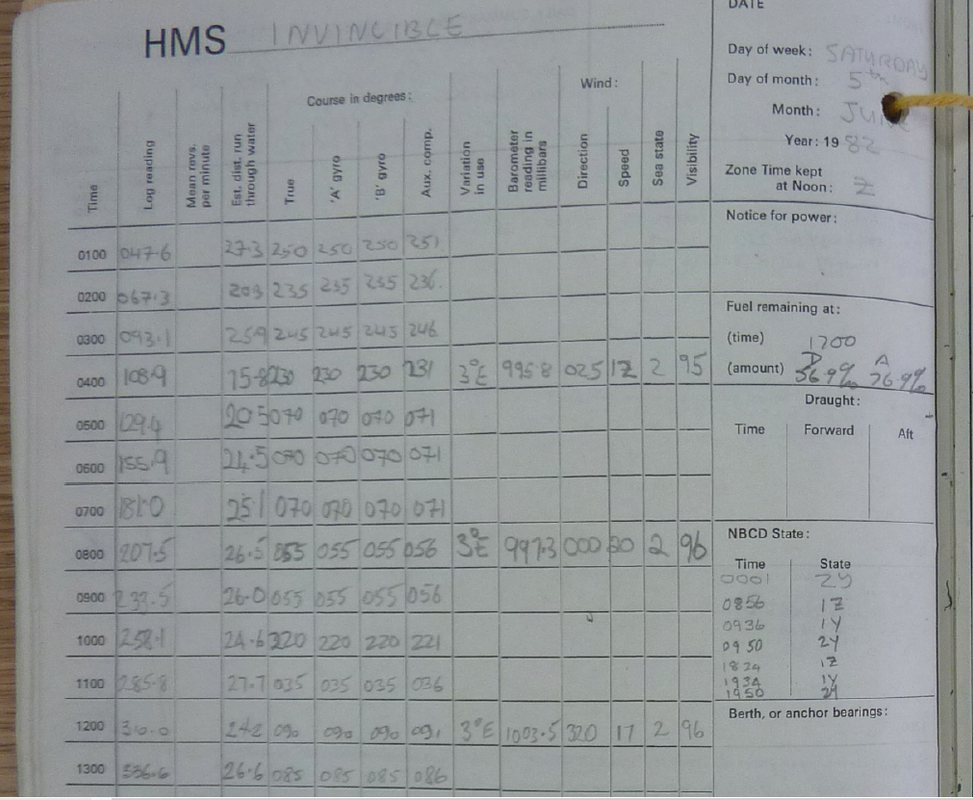 HMS INVINCIBLE
DATE
Day of week: SATURDAY
Day of month: 5th
Month: JUNE
Year: 1982
Zone Time kept at Noon: Z
Course in degrees:
Wind:
Time | Log reading | Mean revs. per minute | Est. dist. run through water | True | 'A' gyro | 'B' gyro | Aux. comp. | Variation in use | Barometer reading in millibars | Direction | Speed | Sea state | Visibility
0100 047.6 27.3 250 250 250 251
0200 067.3 235 235 235 236
0300 093.1 25.9 245 245 245 246
0400 108.9 15.8 230 230 230 231 3°E 995.8 025 12 2 95
0500 129.4 20.5 070 070 070 071
0600 155.9 070 070 070 071
0700 181.0 25.1 070 070 070 071
0800 207.5 26.5 055 055 055 056 3°E 997.3 000 20 2 96
0900 233.5 26.0 055 055 055 056
1000 258.1 24.6 220 220 221
1100 285.8 27.7 035 035 035 036
1200 310.0 24.2 090 090 090 091 3°E 1003.5 320 17 2 96
1300 336.6 26.6 085 085 085 086
Notice for power:
Fuel remaining at:
(time) 1700
(amount) D 56.9% A 76.9%
Draught:
Time Forward Aft
NBCD State:
Time State
0001 2Y
0856 1Z
0936 1Y
0950 2Y
1824 1Z
1934 1Y
1950 2Y
Berth, or anchor bearings: